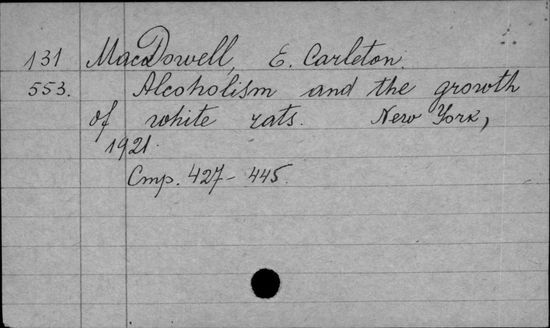 131 MacDowell, E. Carleton.
553. Alcoholism and the growth
of white rats. New York,
1921.
Стр. 427-445.